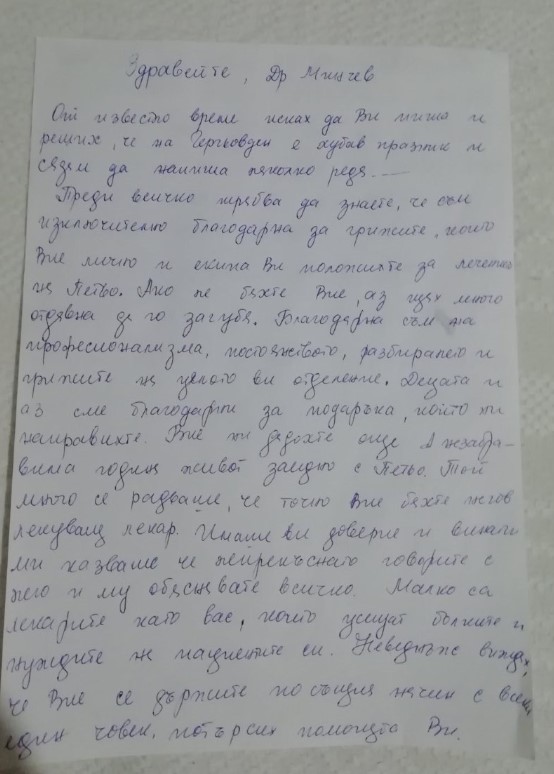 Здравейте, Др Минчев
От известно време исках да Ви пиша и
реших, че на Гергьовден е хубав празник и
сядам да напиша няколко реда.—
Преди всичко трябва да знаете, че съм
изключително благодарна за грижите, които
Вие лично и екипа Ви положихте за лечението
на Петьо. Ако не бяхте Вие, аз щях много
отдавна да го загубя. Благодарна съм на
професионализма, постоянството, разбирането и
грижите на цялото ви отделение. Децата и
аз сме благодарни за подаръка, който ни
направихте. Вие ни дадохте още 1 незабра-
вима година живот заедно с Петьо. Той
много се радваше, че точно Вие бяхте негов
лекуващ лекар. Имаше ви доверие и винаги
ми казваше че непрекъснато говорите с
него и му обяснявате всичко. Малко са
лекарите като вас, които усещат болките и
нуждите на пациентите си. Неведнъж виждах,
че Вие се държите по същия начин с всеки
един човек, потърсил помощта Ви.